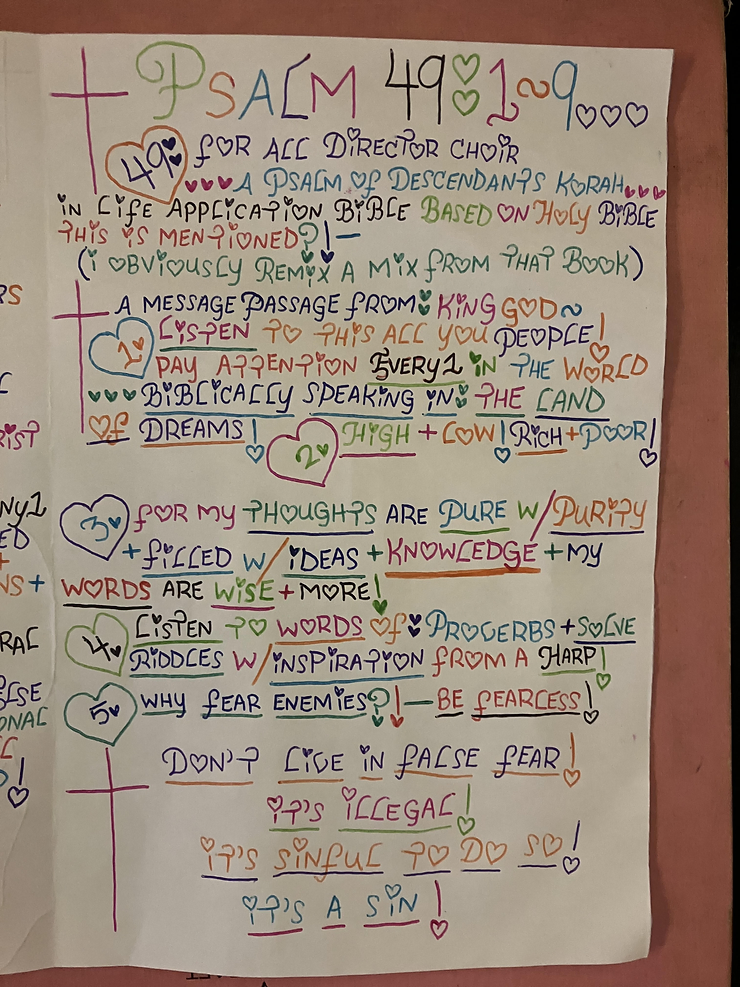 PSALM 49:1~9
49 FOR ALL DIRECTOR CHOIR
A PSALM OF DESCENDANTS KORAH
IN LIFE APPLICATION BIBLE BASED ON HOLY BIBLE
THIS IS MENTIONED?!—
(I OBVIOUSLY REMIX A MIX FROM THAT BOOK)
A MESSAGE PASSAGE FROM: KING GOD~
1 LISTEN TO THIS ALL YOU PEOPLE!
PAY ATTENTION EVERY1 IN THE WORLD
BIBLICALLY SPEAKING IN: THE LAND
OF DREAMS! 2 HIGH + LOW! RICH + POOR!
3 FOR MY THOUGHTS ARE PURE W/ PURITY
+ FILLED W/ IDEAS + KNOWLEDGE + MY
WORDS ARE WISE + MORE!
4 LISTEN TO WORDS OF: PROVERBS + SOLVE
RIDDLES W/ INSPIRATION FROM A HARP!
5 WHY FEAR ENEMIES?!— BE FEARLESS!
DON'T LIVE IN FALSE FEAR!
IT'S ILLEGAL!
IT'S SINFUL TO DO SO!
IT'S A SIN!